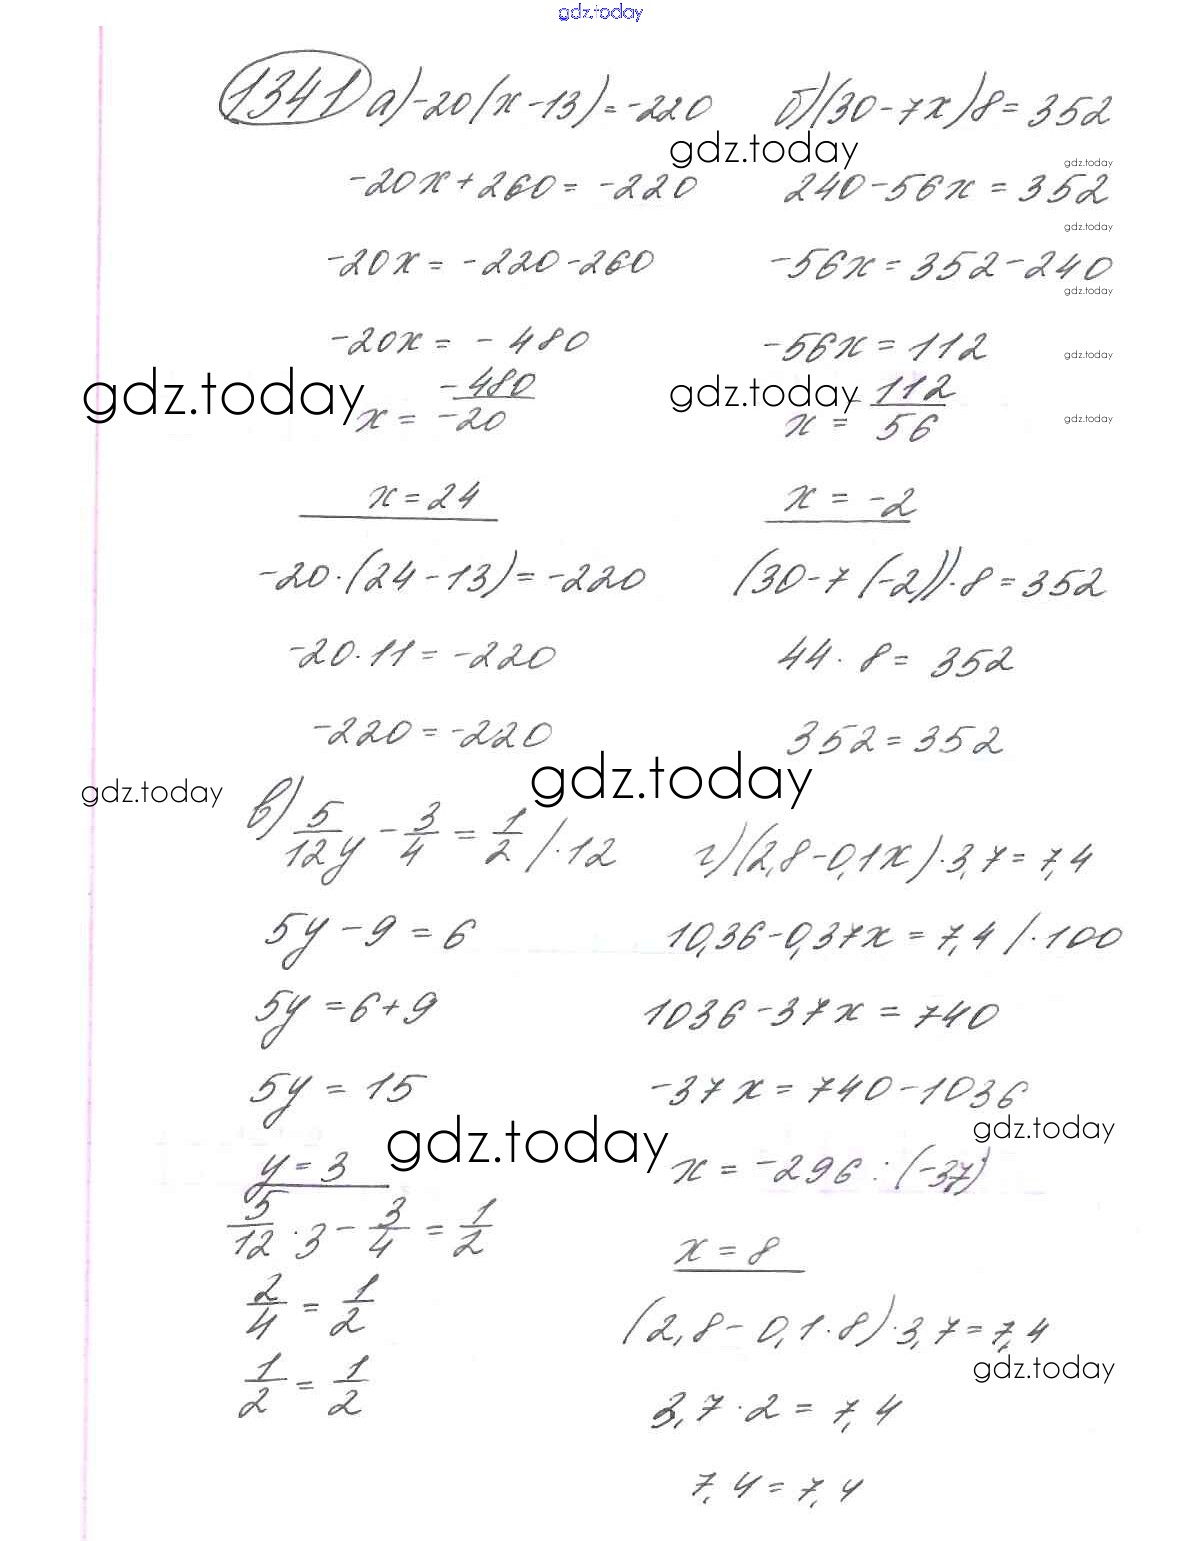 gdz.today
1341 а) -20(x-13) = -220
-20x + 260 = -220
-20x = -220 - 260
-20x = -480
x = -480/-20
x = 24
-20·(24-13) = -220
-20·11 = -220
-220 = -220
б) (30-7x)8 = 352
240 - 56x = 352
-56x = 352 - 240
-56x = 112
x = -112/56
x = -2
(30-7(-2))·8 = 352
44·8 = 352
352 = 352
в) 5/12 y - 3/4 = 1/2 /·12
5y - 9 = 6
5y = 6 + 9
5y = 15
y = 3
5/12 · 3 - 3/4 = 1/2
2/4 = 1/2
1/2 = 1/2
г) (2,8-0,1x)·3,7 = 7,4
10,36 - 0,37x = 7,4 /·100
1036 - 37x = 740
-37x = 740 - 1036
x = -296 : (-37)
x = 8
(2,8 - 0,1·8)·3,7 = 7,4
3,7·2 = 7,4
7,4 = 7,4
gdz.today
gdz.today
gdz.today
gdz.today
gdz.today
gdz.today
gdz.today
gdz.today
gdz.today
gdz.today
gdz.today
gdz.today
gdz.today